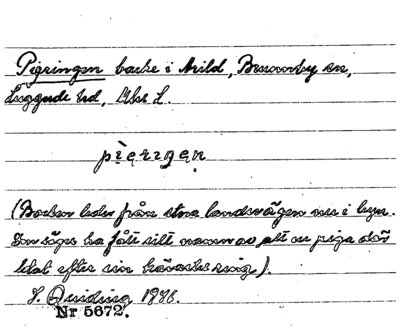 Pigringen backe i Arild, Brunnby sn,
Luggude hd, Mlm L.
pīęrıgęn
(Backen leder från stora landsvägen ner i byn.
Den säges ha fått sitt namn av att en piga där
letat efter sin kärastes ring).
J. Quiding 1976.
Nr 5672.